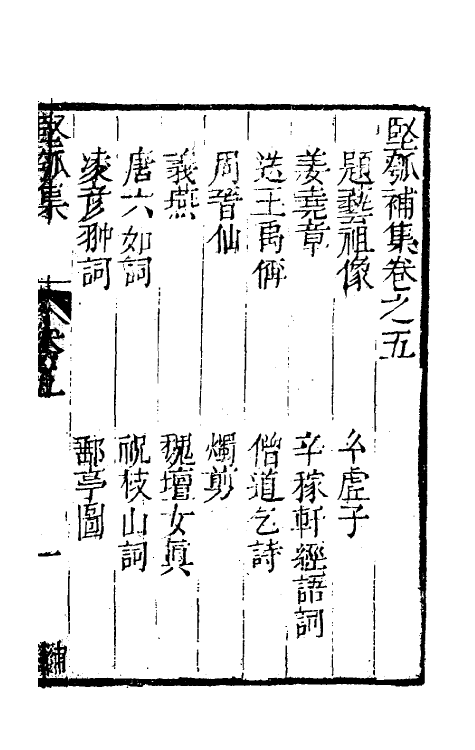 堅瓠補集卷之五
題藝祖像
幺虛子
姜堯章
辛稼軒經語詞
送王禹偁
僧道乞詩
周晉仙
燭剪
義燕
魏壇女真
唐六如詞
祝枝山詞
凌彥翀詞
鄱亭圖
堅瓠集
卷五
一
補